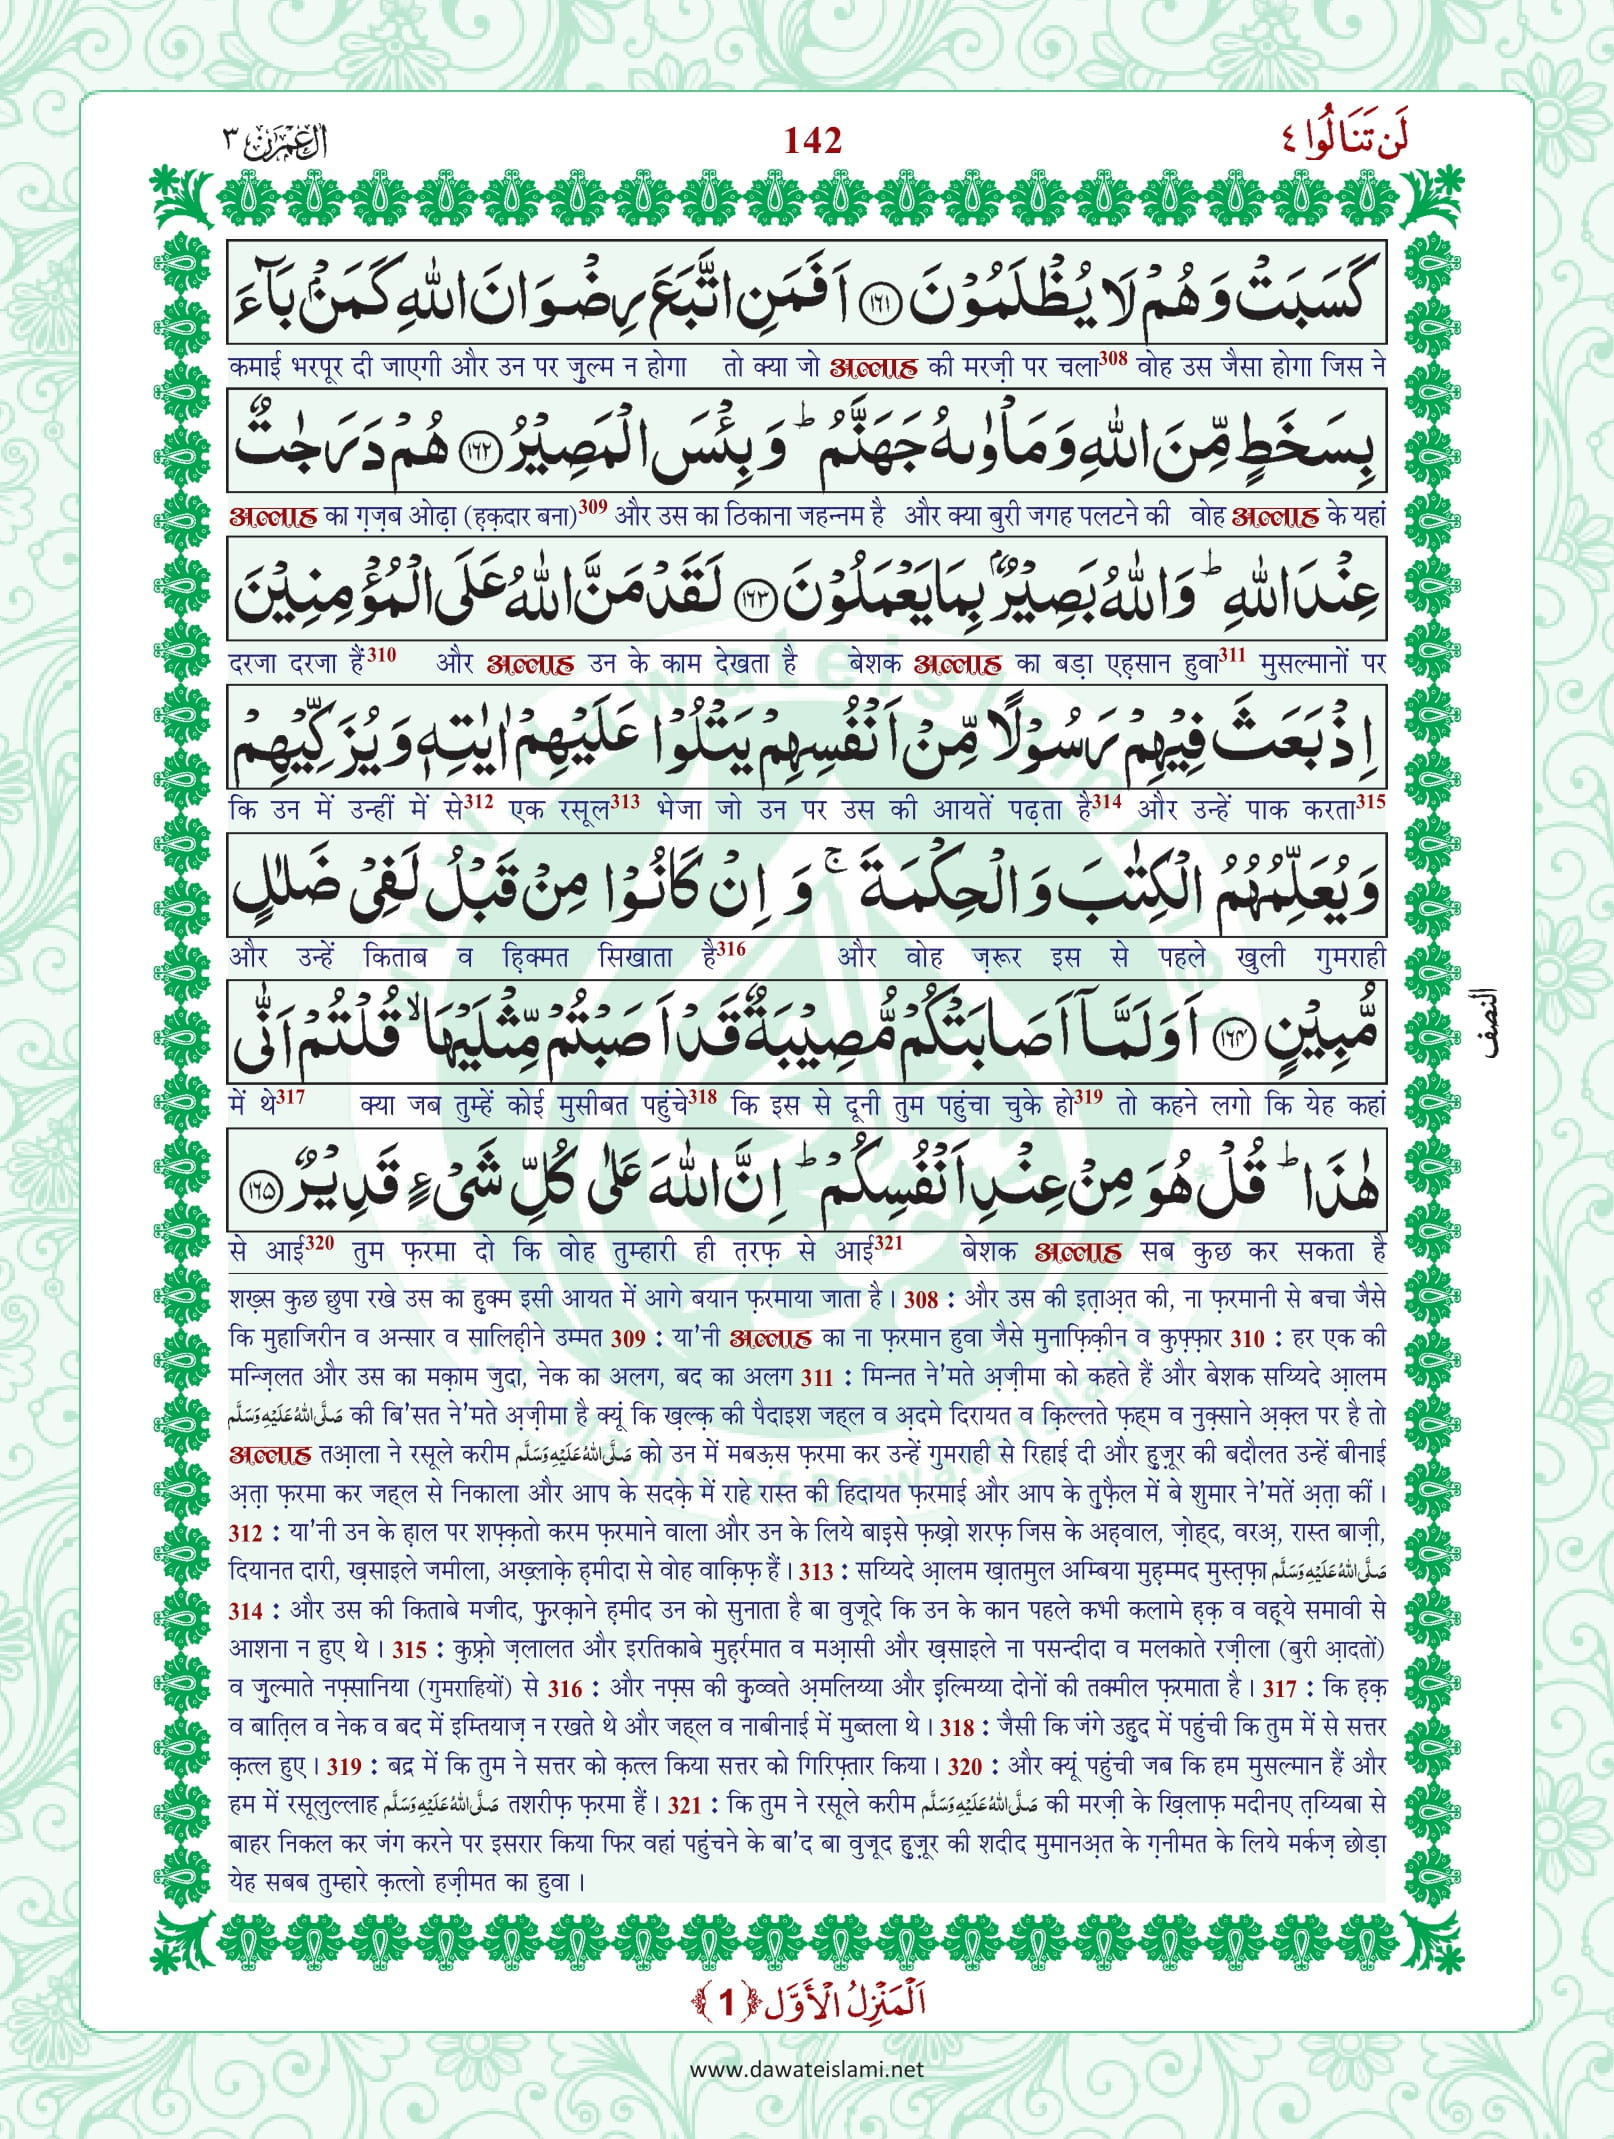 اٰل عمرٰن ٣ 142 لَنْ تَنَالُوا ٤
كَسَبَتْ وَهُمْ لَا يُظْلَمُوْنَ ﴿۱۶۱﴾ اَفَمَنِ اتَّبَعَ رِضْوَانَ اللّٰهِ كَمَنْۢ بَآءَ
कमाई भरपूर दी जाएगी और उन पर ज़ुल्म न होगा तो क्या जो अल्लाह की मरज़ी पर चला308 वोह उस जैसा होगा जिस ने
بِسَخَطٍ مِّنَ اللّٰهِ وَمَاْوٰىهُ جَهَنَّمُ ؕ وَ بِئْسَ الْمَصِيْرُ ﴿۱۶۲﴾ هُمْ دَرَجٰتٌ
अल्लाह का ग़ज़ब ओढ़ा (ह़क़दार बना)309 और उस का ठिकाना जहन्नम है और क्या बुरी जगह पलटने की वोह अल्लाह के यहां
عِنْدَ اللّٰهِ ؕ وَاللّٰهُ بَصِيْرٌۢ بِمَا يَعْمَلُوْنَ ﴿۱۶۳﴾ لَقَدْ مَنَّ اللّٰهُ عَلَى الْمُؤْمِنِيْنَ
दरजा दरजा हैं310 और अल्लाह उन के काम देखता है बेशक अल्लाह का बड़ा एह़सान हुवा311 मुसल्मानों पर
اِذْ بَعَثَ فِيْهِمْ رَسُوْلًا مِّنْ اَنْفُسِهِمْ يَتْلُوْا عَلَيْهِمْ اٰيٰتِهٖ وَيُزَكِّيْهِمْ
कि उन में उन्हीं में से312 एक रसूल313 भेजा जो उन पर उस की आयतें पढ़ता है314 और उन्हें पाक करता315
وَيُعَلِّمُهُمُ الْكِتٰبَ وَالْحِكْمَةَ ۚ وَ اِنْ كَانُوْا مِنْ قَبْلُ لَفِيْ ضَلٰلٍ
और उन्हें किताब व ह़िक्मत सिखाता है316 और वोह ज़रूर इस से पहले खुली गुमराही
مُّبِيْنٍ ﴿۱۶۴﴾ اَوَلَمَّآ اَصَابَتْكُمْ مُّصِيْبَةٌ قَدْ اَصَبْتُمْ مِّثْلَيْهَا ۙ قُلْتُمْ اَنّٰى
में थे317 क्या जब तुम्हें कोई मुसीबत पहुंचे318 कि इस से दूनी तुम पहुंचा चुके हो319 तो कहने लगो कि येह कहां
هٰذَا ؕ قُلْ هُوَ مِنْ عِنْدِ اَنْفُسِكُمْ ؕ اِنَّ اللّٰهَ عَلٰى كُلِّ شَيْءٍ قَدِيْرٌ ﴿۱۶۵﴾
से आई320 तुम फ़रमा दो कि वोह तुम्हारी ही त़रफ़ से आई321 बेशक अल्लाह सब कुछ कर सकता है
النصف
शख़्स कुछ छुपा रखे उस का ह़ुक्म इसी आयत में आगे बयान फ़रमाया जाता है । 308 : और उस की इत़ाअ़त की, ना फ़रमानी से बचा जैसे
कि मुहाजिरीन व अन्सार व सालिह़ीने उम्मत 309 : या'नी अल्लाह का ना फ़रमान हुवा जैसे मुनाफ़िक़ीन व कुफ़्फ़ार 310 : हर एक की
मन्ज़िलत और उस का मक़ाम जुदा, नेक का अलग, बद का अलग 311 : मिन्नत ने'मते अ़ज़ीमा को कहते हैं और बेशक सय्यिदे आ़लम
صَلَّى اللّٰهُ عَلَيْهِ وَسَلَّم की बि'सत ने'मते अज़ीमा है क्यूं कि ख़ल्क़ की पैदाइश जह्ल व अ़दमे दिरायत व क़िल्लते फ़ह्म व नुक़्साने अ़क़्ल पर है तो
अल्लाह तआ़ला ने रसूले करीम صَلَّى اللّٰهُ عَلَيْهِ وَسَلَّم को उन में मबऊ़स फ़रमा कर उन्हें गुमराही से रिहाई दी और ह़ुज़ूर की बदौलत उन्हें बीनाई
अ़त़ा फ़रमा कर जह्ल से निकाला और आप के सदक़े में राहे रास्त की हिदायत फ़रमाई और आप के तुफ़ैल में बे शुमार ने'मतें अ़त़ा कीं ।
312 : या'नी उन के ह़ाल पर शफ़्क़तो करम फ़रमाने वाला और उन के लिये बाइसे फ़ख़्रो शरफ़ जिस के अह़वाल, ज़ोह्द, वरअ़, रास्त बाज़ी,
दियानत दारी, ख़साइले जमीला, अख़्लाक़े ह़मीदा से वोह वाक़िफ़ हैं । 313 : सय्यिदे आ़लम ख़ातमुल अम्बिया मुह़म्मद मुस्त़फ़ा صَلَّى اللّٰهُ عَلَيْهِ وَسَلَّم
314 : और उस की किताबे मजीद, फ़ुरक़ाने ह़मीद उन को सुनाता है बा वुजूदे कि उन के कान पहले कभी कलामे ह़क़ व वह़्ये समावी से
आशना न हुए थे । 315 : कुफ़्रो ज़लालत और इरतिकाबे मुह़र्रमात व मआ़सी और ख़साइले ना पसन्दीदा व मलकाते रज़ीला (बुरी आ़दतों)
व ज़ुल्माते नफ़्सानिया (गुमराहियों) से 316 : और नफ़्स की क़ुव्वते अ़मलिय्या और इ़ल्मिय्या दोनों की तक्मील फ़रमाता है । 317 : कि ह़क़
व बात़िल व नेक व बद में इम्तियाज़ न रखते थे और जह्ल व नाबीनाई में मुब्तला थे । 318 : जैसी कि जंगे उह़ुद में पहुंची कि तुम में से सत्तर
क़त्ल हुए । 319 : बद्र में कि तुम ने सत्तर को क़त्ल किया सत्तर को गिरिफ़्तार किया । 320 : और क्यूं पहुंची जब कि हम मुसल्मान हैं और
हम में रसूलुल्लाह صَلَّى اللّٰهُ عَلَيْهِ وَسَلَّم तशरीफ़ फ़रमा हैं । 321 : कि तुम ने रसूले करीम صَلَّى اللّٰهُ عَلَيْهِ وَسَلَّم की मरज़ी के ख़िलाफ़ मदीनए त़य्यिबा से
बाहर निकल कर जंग करने पर इसरार किया फिर वहां पहुंचने के बा'द बा वुजूद ह़ुज़ूर की शदीद मुमानअ़त के ग़नीमत के लिये मर्कज़ छोड़ा
येह सबब तुम्हारे क़त्लो हज़ीमत का हुवा ।
اَلْمَنْزِلُ الْاَوَّل ﴿1﴾
www.dawateislami.net